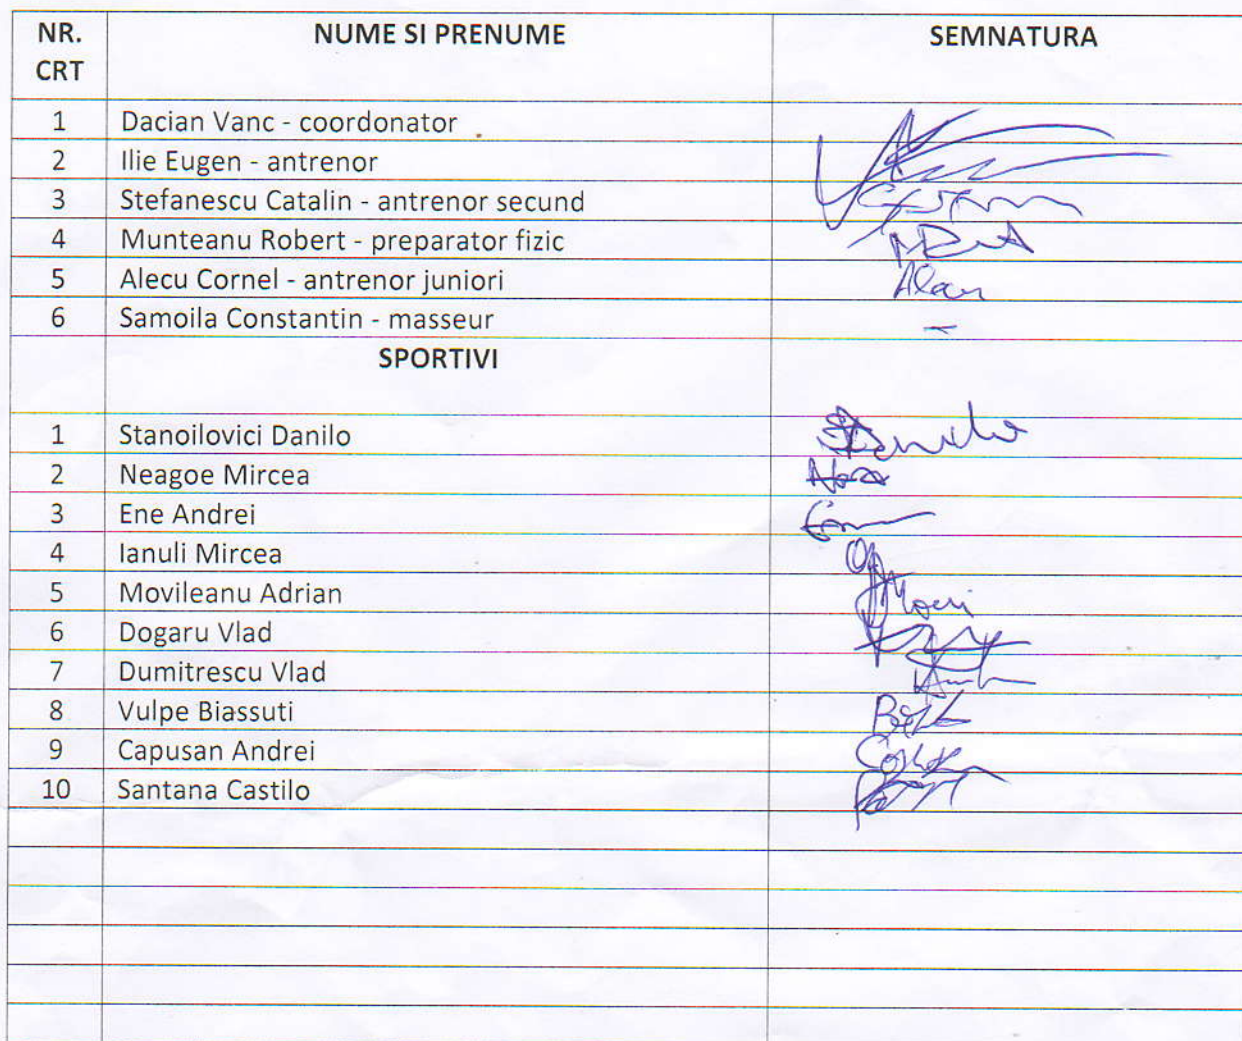 NR. CRT NUME SI PRENUME SEMNATURA
1 Dacian Vanc - coordonator
2 Ilie Eugen - antrenor
3 Stefanescu Catalin - antrenor secund
4 Munteanu Robert - preparator fizic
5 Alecu Cornel - antrenor juniori
6 Samoila Constantin - masseur
SPORTIVI
1 Stanoilovici Danilo
2 Neagoe Mircea
3 Ene Andrei
4 Ianuli Mircea
5 Movileanu Adrian
6 Dogaru Vlad
7 Dumitrescu Vlad
8 Vulpe Biassuti
9 Capusan Andrei
10 Santana Castilo